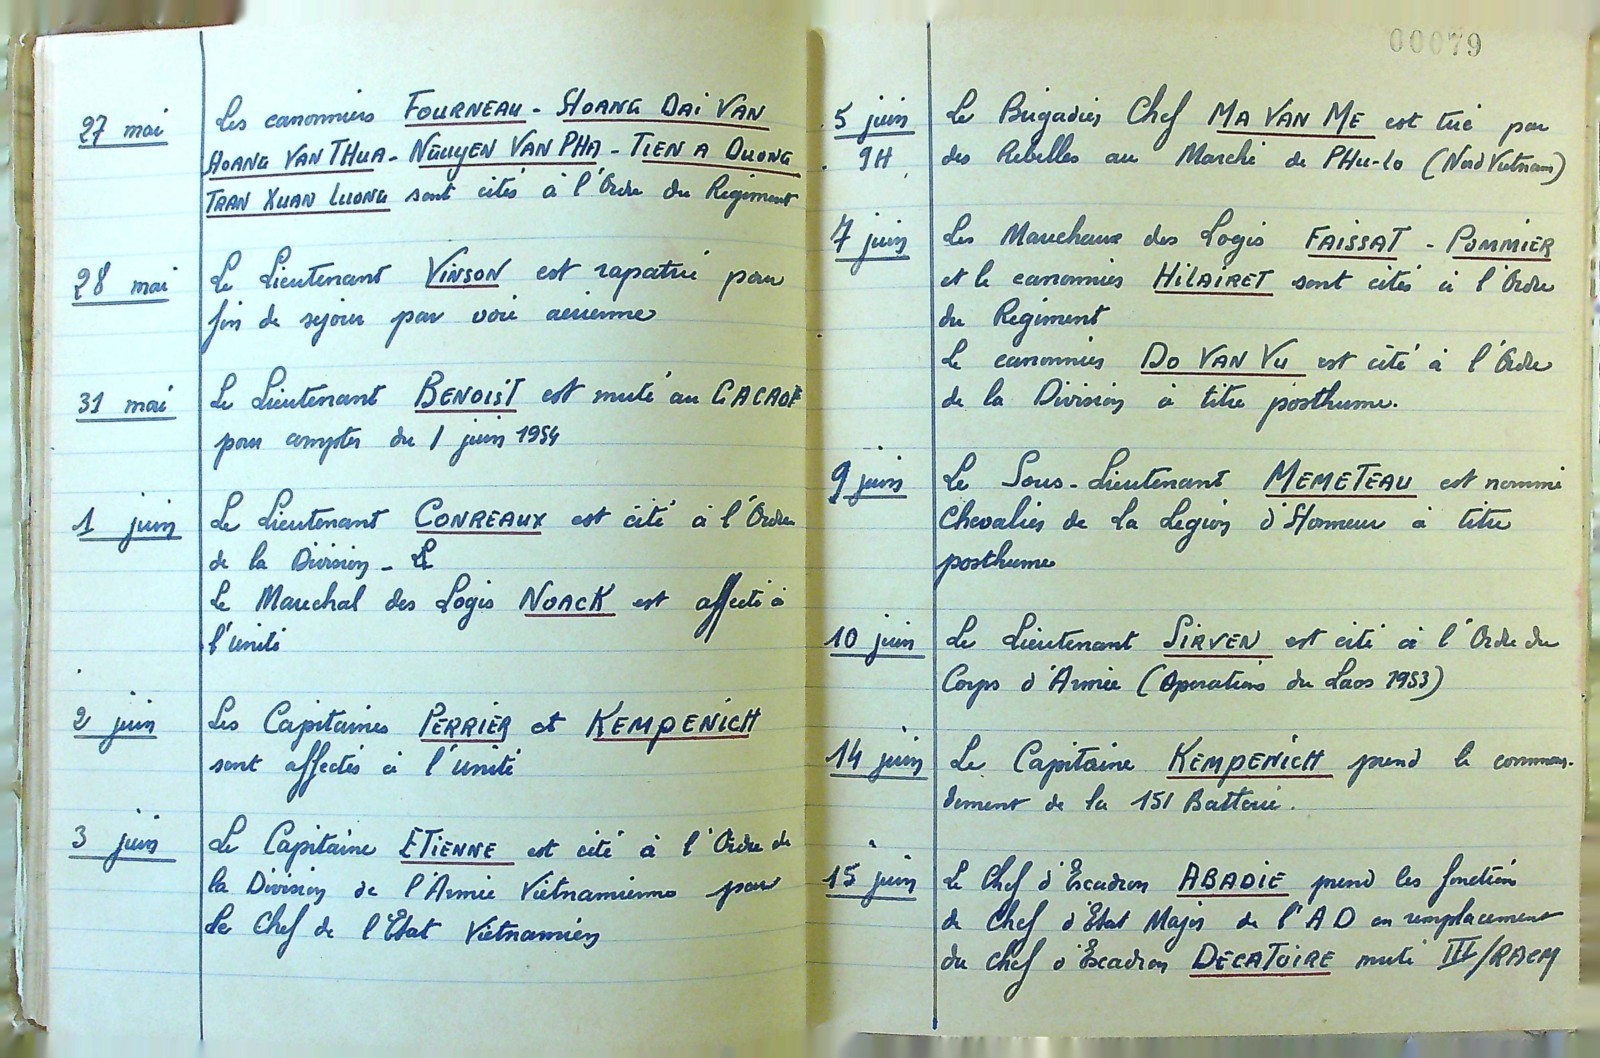 27 mai Les canonniers FOURNEAU - HOANG DAI VAN
HOANG VAN THUA - NGUYEN VAN PHA - TIEN A DUONG
TRAN XUAN LUONG sont cités à l'Ordre du Regiment
28 mai Le Lieutenant VINSON est rapatrié pour
fin de sejour par voie aerienne
31 mai Le Lieutenant BENOIST est muté au GACAOF
pour compter du 1 juin 1954
1 juin Le Lieutenant CONREAUX est cité à l'Ordre
de la Division - Le
Le Marechal des Logis NOACK est affecté à
l'Unité
2 juin Les Capitaines PERRIER et KEMPENICH
sont affectés à l'unité
3 juin Le Capitaine ETIENNE est cité à l'Ordre de
la Division de l'Armée Vietnamienne par
Le Chef de l'Etat Vietnamien
00079
5 juin Le Brigadier Chef MA VAN ME est tué par
9H des Rebelles au Marché de PHU-LO (Nord Vietnam)
7 juin Les Marechaux des Logis FAISSAT - POMMIER
et le canonnier HILAIRET sont cités à l'Ordre
du Regiment
Le canonnier DO VAN VU est cité à l'Ordre
de la Division à titre posthume.
9 juin Le Sous-Lieutenant MEMETEAU est nommé
Chevalier de La Legion d'Honneur à titre
posthume
10 juin Le Lieutenant SIRVEN est cité à l'Ordre du
Corps d'Armée (Operations du Laos 1953)
14 juin Le Capitaine KEMPENICH prend le comman-
dement de la 151 Batterie.
15 juin Le Chef d'Escadron ABADIE prend les fonction
de Chef d'Etat Major de l'AD en remplacement
du Chef d'Escadron DECATOIRE muté III/RACM